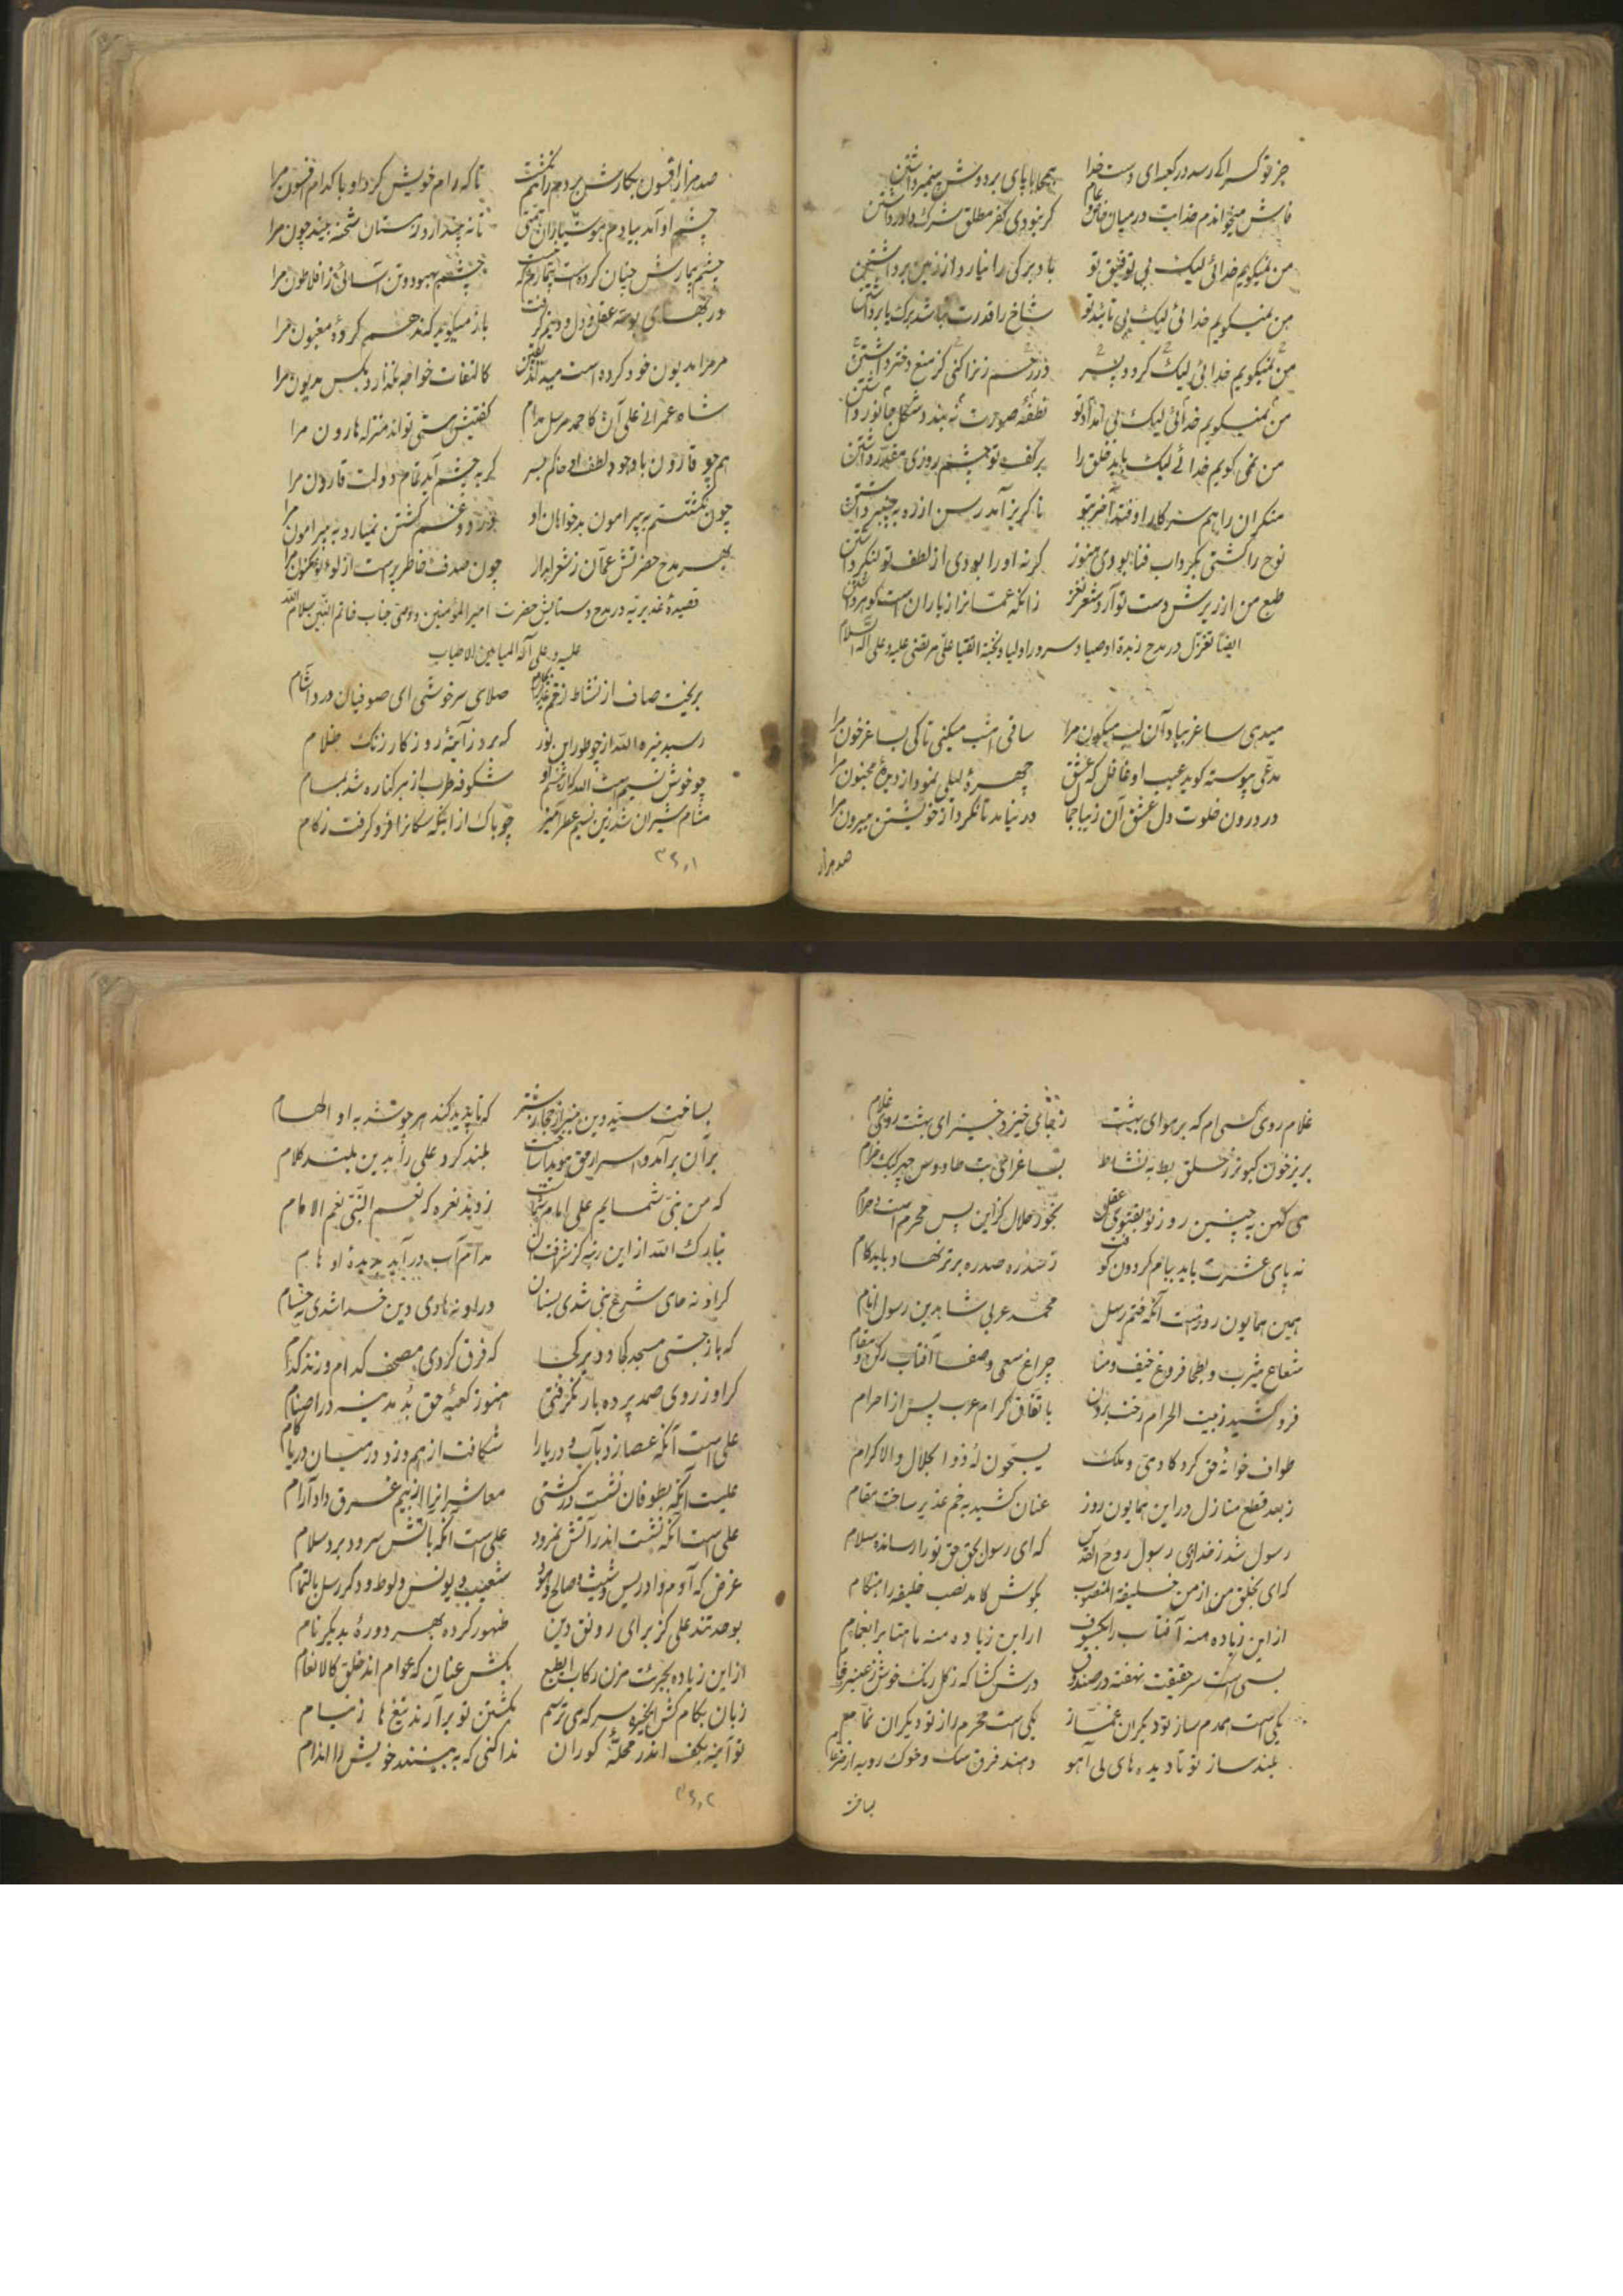 جز تو کسرا کی رسد در کعبه ای دست خدا بیمحابا پای بر دوش پیمبر داشتن
فاش میخواندم خدایت در میان خاص و عام گر نبودی کفر مطلق شرک داور داشتن
من نمیگویم خدائی لیک بی توفیق تو باد بر کی را نیارد از زمین برداشتن
من نمیگویم خدائی لیک بی تائید تو شاخ را قدرت نباشد برک یا بر داشتن
من نمیگویم خدائی لیک گر دو پسر در رحم زنرا کنی کز منع دختر داشتن
من نمیگویم خدائی لیک بی امداد تو نطفهٔ صورت نه بندد شکل جانور داشتن
من نمی گویم خدائی لیک باید خلق را بر کف تو چشم روزی مقدر داشتن
منکران را هم سر کار اوفتد آخر بتو ناگریز آمد رسن از ره به چنبر داشتن
نوح را کشتی بگرداب فنا بودی هنوز گر نه او را بودی از لطف تو لنگر داشتن
طبع من از ریزش دست تو آرد شعر نغز زانکه عمانرا ز باران است گوهر داشتن
ایضا تغزل در مدح زبدهٔ اوصیا و سرور اولیا و نخبهٔ اتقیا علی مرتضی علیه و علی آله السلام
میدهی ساغر بیاد آن لب میگون مرا ساقی امشب میکنی تا کی بساغر خون مرا
مدعی پیوسته گوید عیب او غافل که عشق چهرهٔ لیلی نمود از دیدهٔ مجنون مرا
در درون خلوت دل عشق آن زیبا جمال در نیامد تا نکرد از خویشتن بیرون مرا
صد هزار
صد هزار افسون بکارش بردم و رامم نگشت تا که رام خویش کرد او با کدام افسون مرا
چشم او آمد بیادم هوشیاران همتی تا نه پندارد ز مستان شحنه بیند چون مرا
چشم بیمارش چنان کرده است بیمارم که نیست چشم بهبود و تن آسائی ز افلاطون مرا
در بهای بوسهٔ عقل و دل و دینم گرفت باز میگوید که در هم کردهٔ مغبون مرا
مر مرا مدیون خود کرده است میداند یقین کالتفات خواجه نگذارد بکس مدیون مرا
شاه عمرانی علی آن کاحمد مرسل مدام گفتیش هستی تو اند منزله هارون مرا
هم چو قارون باد جود لطف او خاکم بسر گر به چشم آید تمام دولت قارون مرا
چون نگشتم به پیرامون بدخواهان او درد و غم گشتن نیارد به پیرامون مرا
بهر مدح حضرتش عمان ز شعر آبدار چون صدف خاطر پر است از لؤلؤ مکنون مرا
قصیدهٔ غدیریه در مدح و ستایش حضرت امیر المؤمنین و وصی جناب خاتم النبیین سلام الله
علیه و علی آله المیامین الاطیاب
بریخت صاف از نشاط از خم غدیر بجام صلای سرخوشی ای صوفیان درد آشام
رسید نیره الله از چو طور این نور که برد ز آینهٔ روزگار زنگ ظلام
چو خوش نسیم است الله که از نسیم او شکوفه طرب از هر کناره شد بسام
مشام شیران شد زین نسیم عطرآمیز چو باک از اینکه سگانرا فرو گرفت زکام
۳۶۰۱
غلام روی کسی ام که بر هوای بهشت ز جای خیزد و خیز ای بهشت روی غلام
بریز خون کبوتر ز حلق بط به نشاط بساغر ای بت طاووس چهر کبک خرام
می کهن به چنین روز نو بفتوی عقل بخور حلال کز این پس محرم است و حرام
نه پای عشرت باید ببام گردون کوفت ز صدره برتر نهاد باید گام
همین همایون روز است آنکه ختم رسل محمد عربی شاهد بین رسول انام
شعاع یثرب و بطحا فروغ خیف و منا چراغ سعی و صفا آفتاب رکن و مقام
فرو کشید ز بیت الحرام رخت برون باتفاق کرام عرب پس از احرام
طواف خانهٔ حق کرد کادمی و ملک یسبحون له ذو الجلال و الاکرام
ز بعد قطع منازل در این همایون روز عنان کشید به خم غدیر ساخت مقام
رسول شد ز خدای رسول روح القدس که ای رسول بحق حق تو را رسانده سلام
که ای بخلق من از من خلیفة المنصوب بکوش کامد نصب خلیفه را هنگام
از این زیاده منه آفتاب را بکسوف از این زیاده منه ماهتابرا بغمام
بسی است سر حقیقت نهفته در صندوق درش گشا که ز گل رنگ خوش ز عنبر فام
یکی است همدم ساز تو دیگران غماز یکی است محرم راز تو دیگران نمام
بلند ساز تو تا دیده های بی آهو دهند فرق سگ و خوک و روبه از ضرغام
بساخت
بساخت سید دین منبر از جهاز شتر که ناپدید کند هر چه شد به او الهام
بر آن برآمد و اسرار حق هویدا ساخت بلند کرد علی را بدین بلند کلام
که من نبی شمایم علی امام شماست زدند نعره که نعم النبی نعم الامام
تبارک الله از این رتبه کز شرافت آن مدام آب در آید بدیدهٔ اوهام
گر او نه حامی شرع نبی شدی بسنان ور او نه هادی دین خدا شدی به حسام
که باز جستی مسجد کجا و دیر کجا که فرق کردی مصحف کدام و زند کدام
گر او ز روی صمد پرده باز نگرفتی هنوز کعبهٔ حق بد مدینه در اصنام
علی است آنکه عصا زد به آب و دریا را شکافت از هم و زد در میان دریا گام
علیست آنکه بطوفان نشست در کشتی معاشرانرا از بیم غرق داد آرام
علی است آنکه نشست اندر آتش نمرود علی است آنکه بآتش سرود برد سلام
غرض که آدم و ادریس و شیث و صالح و هود شعیب و یونس و لوط و دگر رسل بالتمام
بوحدتند علی کز برای رونق دین ظهور کرده بهر دورهٔ بدیگر نام
از این زیاده بجرئت مزن رکاب ای طبع بکش عنان که عوام اند خلق کالانعام
زبان بکام کش ای خیره سر که می ترسم بکشتن تو برآرند تیغها ز نیام
تو آینه بکف اندر محلهٔ کوران ندا کنی که به بینند خویش را اندام
۳۶۰۲